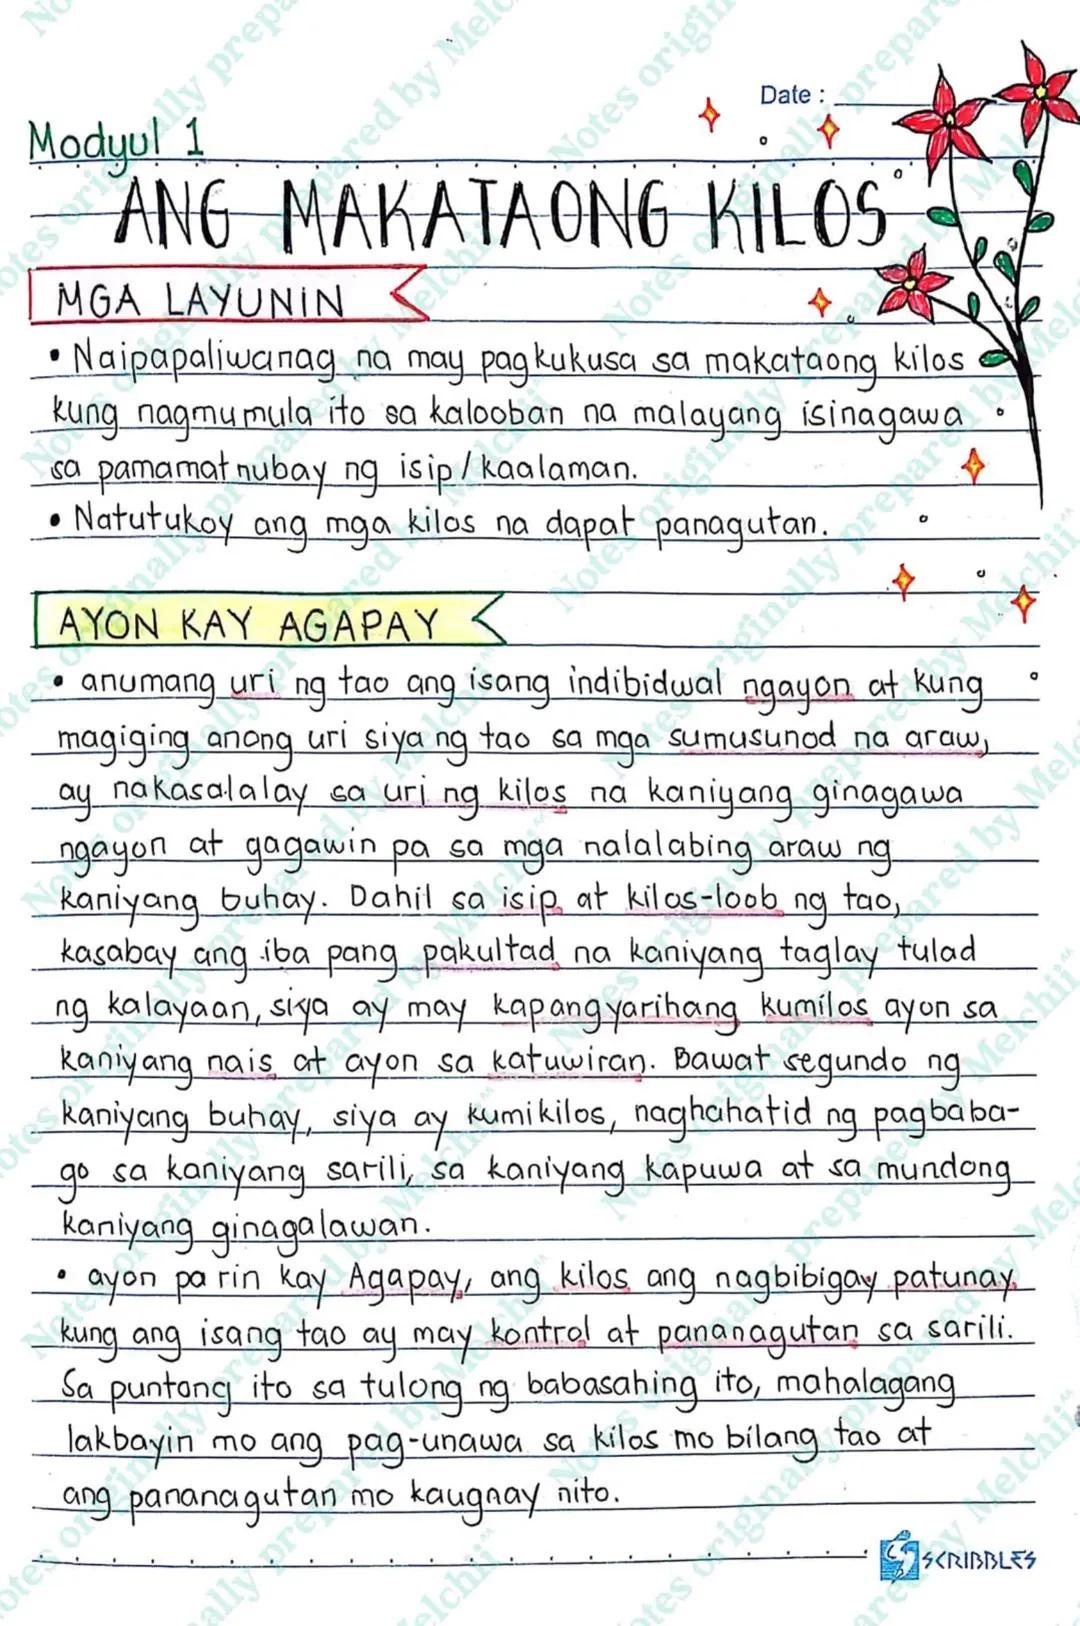 Date :
Modyul 1
ANG MAKATAONG KILOS
MGA LAYUNIN
• Naipapaliwanag na may pagkukusa sa makataong kilos
kung nagmumula ito sa kalooban na malayang isinagawa
sa pamamatnubay ng isip / kaalaman.
• Natutukoy ang mga kilos na dapat panagutan.
AYON KAY AGAPAY
• anumang uri ng tao ang isang indibidwal ngayon at kung
magiging anong uri siya ng tao sa mga sumusunod na araw,
ay nakasalalay sa uri ng kilos na kaniyang ginagawa
ngayon at gagawin pa sa mga nalalabing araw ng
kaniyang buhay. Dahil sa isip at kilos-loob ng tao,
kasabay ang iba pang pakultad na kaniyang taglay tulad
ng kalayaan, siya ay may kapangyarihang kumilos ayon sa
kaniyang nais at ayon sa katuwiran. Bawat segundo ng
kaniyang buhay, siya ay kumikilos, naghahatid ng pagbaba-
go sa kaniyang sarili, sa kaniyang kapuwa at sa mundong
kaniyang ginagalawan.
• ayon pa rin kay Agapay, ang kilos ang nagbibigay patunay
kung ang isang tao ay may kontrol at pananagutan sa sarili.
Sa puntong ito sa tulong ng babasahing ito, mahalagang
lakbayin mo ang pag-unawa sa kilos mo bilang tao at
ang pananagutan mo kaugnay nito.
SCRIBBLES
Notes originally prepared by Melchii